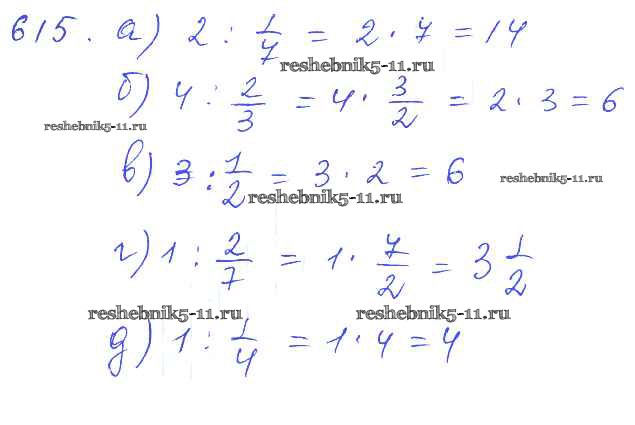 615. а) 2 : 1/7 = 2 · 7 = 14
reshebnik5-11.ru
б) 4 : 2/3 = 4 · 3/2 = 2 · 3 = 6
reshebnik5-11.ru
в) 3 : 1/2 = 3 · 2 = 6
reshebnik5-11.ru
reshebnik5-11.ru
г) 1 : 2/7 = 1 · 7/2 = 3 1/2
reshebnik5-11.ru reshebnik5-11.ru
д) 1 : 1/4 = 1 · 4 = 4